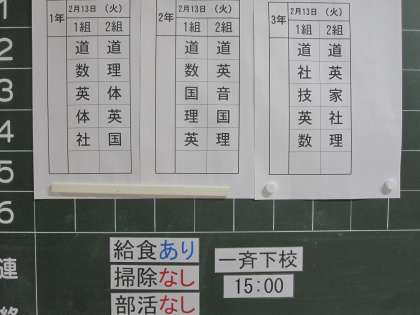 1
2
3
4
5
6
1年 2月13日 (火)
1組 2組
道 道
数 理
英 体
体 英
社 国
2年 2月13日 (火)
1組 2組
道 道
数 英
国 音
理 国
英 理
3年 2月13日 (火)
1組 2組
道 道
社 英
技 家
英 社
数 理
連
給食あり
掃除なし
部活なし
一斉下校
15:00